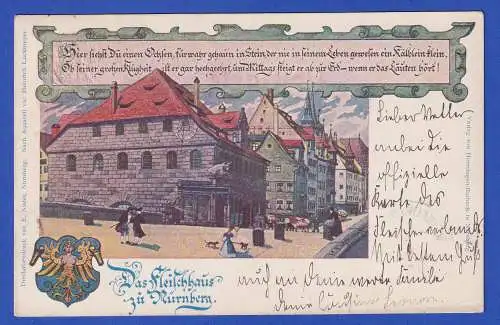 Hier siehst Du einen Ochsen, fürwahr gehau'n in Stein, der nie in seinem Leben gewesen ein Kälblein klein.
Ob seiner großen Klugheit ist er gar hochgeehrt, um Mittags steigt er ab zur Erd – wenn er das Läuten hört!
Lieber Vetter
anbei die
offizielle
Karte des
Fleischerverbands
Mit bestem Gruß
auch an Deine werte Familie
Deine Cousine
Das Fleischhaus
zu Nürnberg.
Dreifarbendruck von E. Nister, Nürnberg. Nach Aquarell von Heinrich
Verlag von